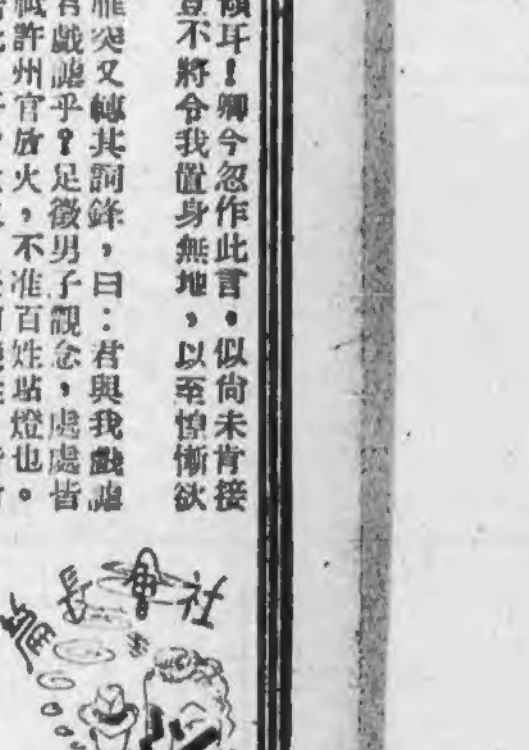 傾耳！卿今忽作此言，似尙未肯接
豈不將令我置身無地，以至惶慚欲
雁突又轉其詞鋒，曰：君與我戲謔
君戲謔乎？足徵男子觀念，處處皆
祗許州官放火，不准百姓點燈也。
社會